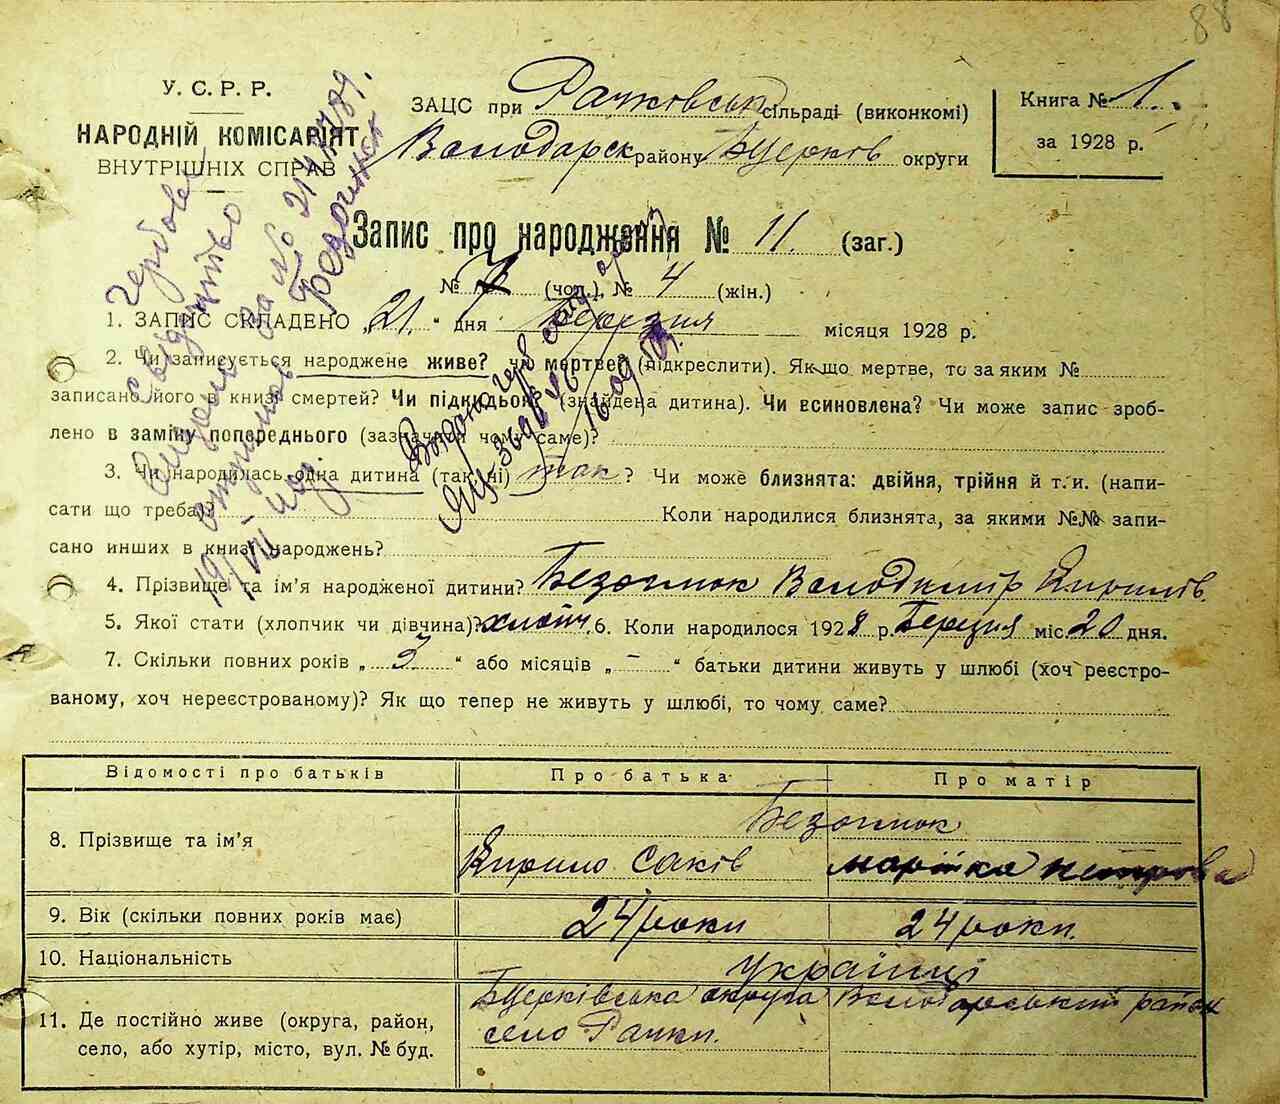 88
У. С. Р. Р.
НАРОДНІЙ КОМІСАРІЯТ
ВНУТРІШНІХ СПРАВ
ЗАЦС при Рачковськ сільраді (виконкомі)
Володарск району Бцерков округи
Книга № 1.
за 1928 р.
Запис про народження № 11. (заг.)
№ 7 (чол.), № 4 (жін.)
1. ЗАПИС СКЛАДЕНО „21.“ дня березня місяця 1928 р.
2. Чи записується народжене живе? чи мертве? (підкреслити). Як що мертве, то за яким №
записано його в книзі смертей? Чи підкидьок? (знайдена дитина). Чи всиновлена? Чи може запис зроб-
лено в заміну попереднього (зазначити чому саме)?
3. Чи народилась одна дитина (так, ні) так? Чи може близнята: двійня, трійня й т. и. (напи-
сати що треба)? Коли народилися близнята, за якими №№ запи-
сано инших в книзі народжень?
4. Прізвище та ім’я народженої дитини? Володимир Кирилів.
5. Якої стати (хлопчик чи дівчина)? хлопч. 6. Коли народилося 1928 р. Березня міс. 20 дня.
7. Скільки повних років „3“ або місяців „–“ батьки дитини живуть у шлюбі (хоч реєстро-
ваному, хоч нереєстрованому)? Як що тепер не живуть у шлюбі, то чому саме?
Відомості про батьків Про батька Про матір
8. Прізвище та ім’я
Кирило Саків Марійка Петрова
9. Вік (скільки повних років має) 24 роки 24 роки.
10. Національність Українці
11. Де постійно живе (округа, район,
село, або хутір, місто, вул. № буд.
Бцерківська округа Володарський район
село Рачки.